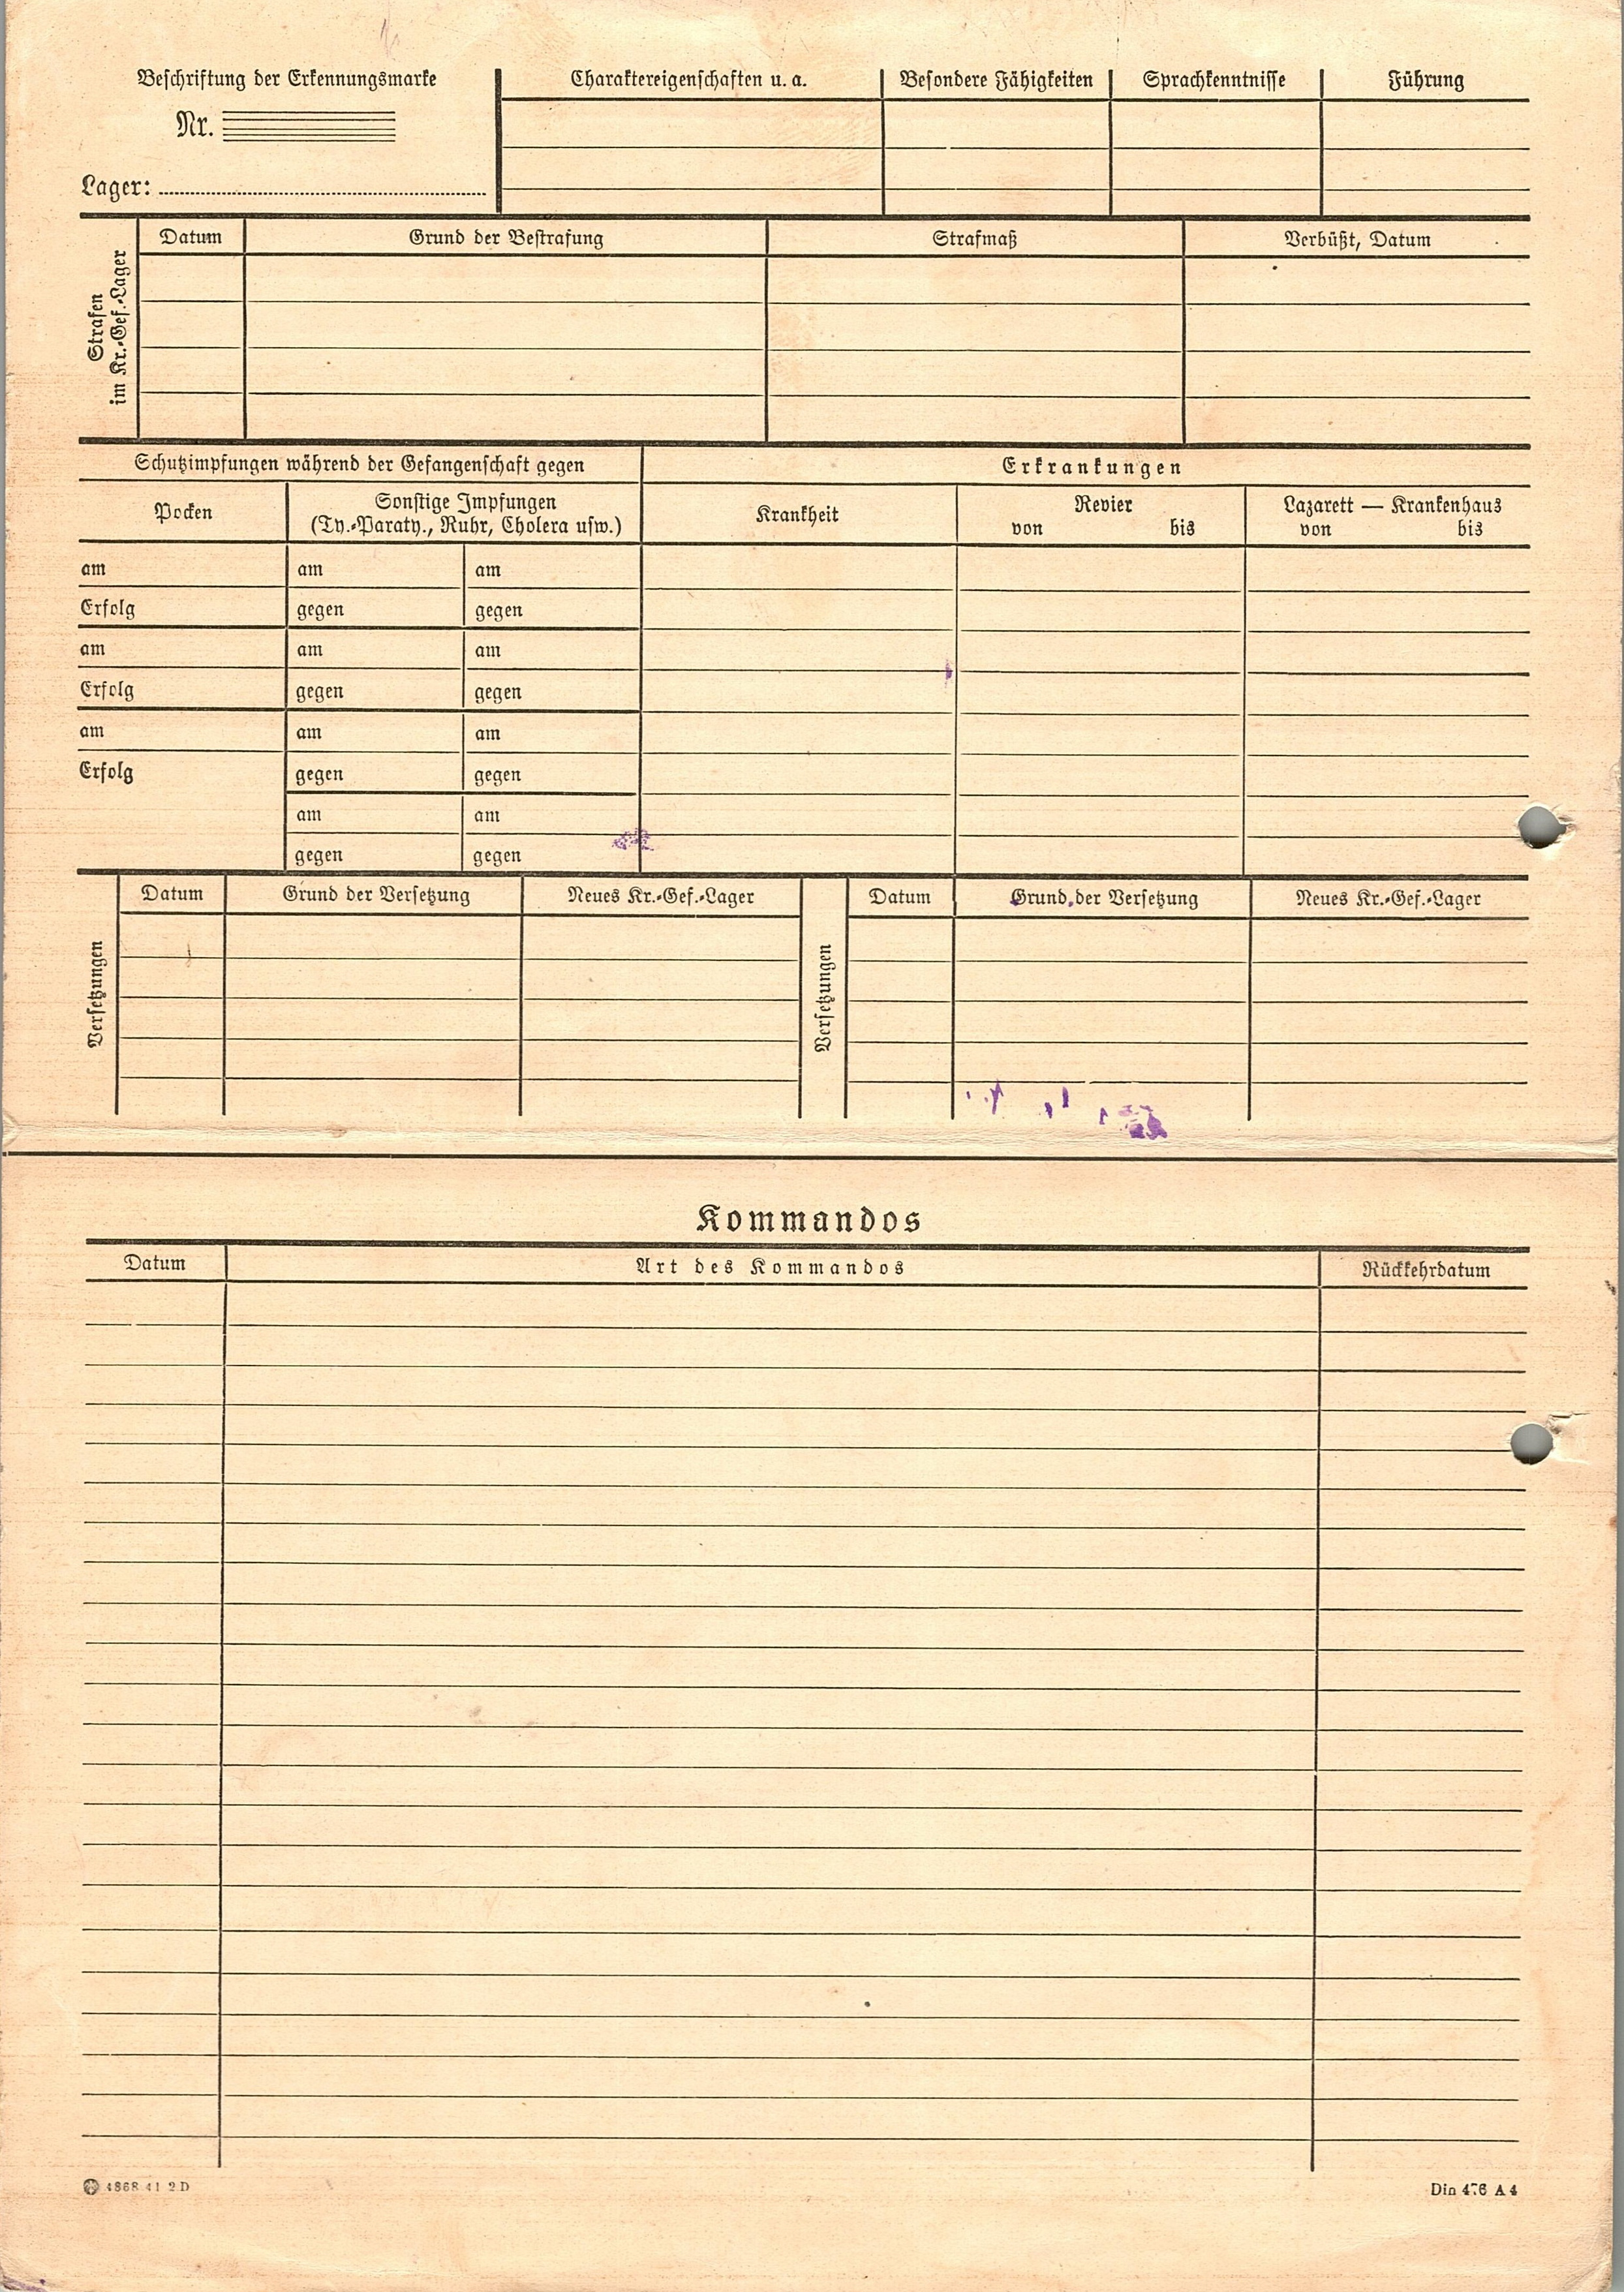 Beschriftung der Erkennungsmarke
Nr.
Lager:
Charaktereigenschaften u. a.
Besondere Fähigkeiten
Sprachkenntnisse
Führung
Strafen
im Kr.-Gef.-Lager
Datum
Grund der Bestrafung
Strafmaß
Verbüßt, Datum
Schutzimpfungen während der Gefangenschaft gegen
Erkrankungen
Pocken
Sonstige Impfungen
(Ty.-Paraty., Ruhr, Cholera usw.)
Krankheit
Revier
von bis
Lazarett — Krankenhaus
von bis
am am am
Erfolg gegen gegen
am am am
Erfolg gegen gegen
am am am
Erfolg gegen gegen
am am
gegen gegen
Versetzungen
Datum
Grund der Versetzung
Neues Kr.-Gef.-Lager
Versetzungen
Datum
Grund der Versetzung
Neues Kr.-Gef.-Lager
Kommandos
Datum
Art des Kommandos
Rückkehrdatum
4868 41 2 D
Din 476 A 4